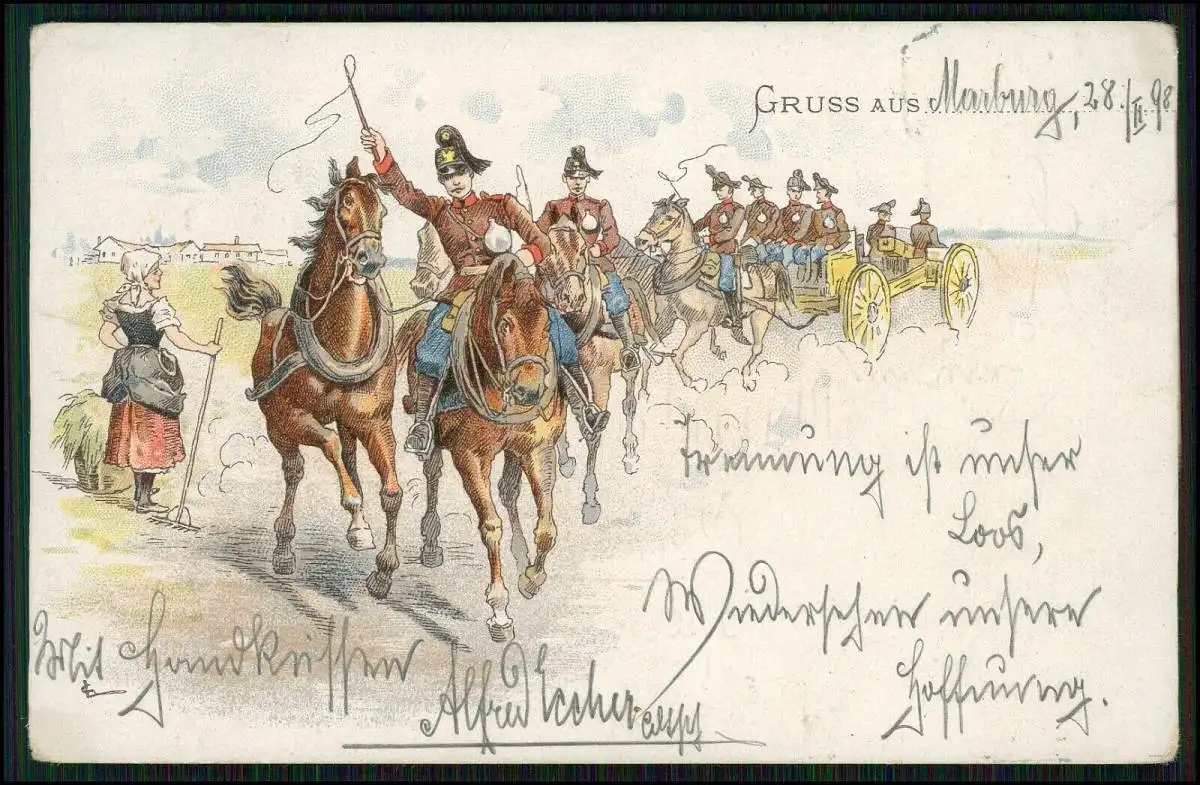 GRUSS AUS Marburg, 28./II 98
Trennung ist unser
Loos,
Wiedersehen unsere
Hoffnung.
Mit Handküssen
Alfred Escher